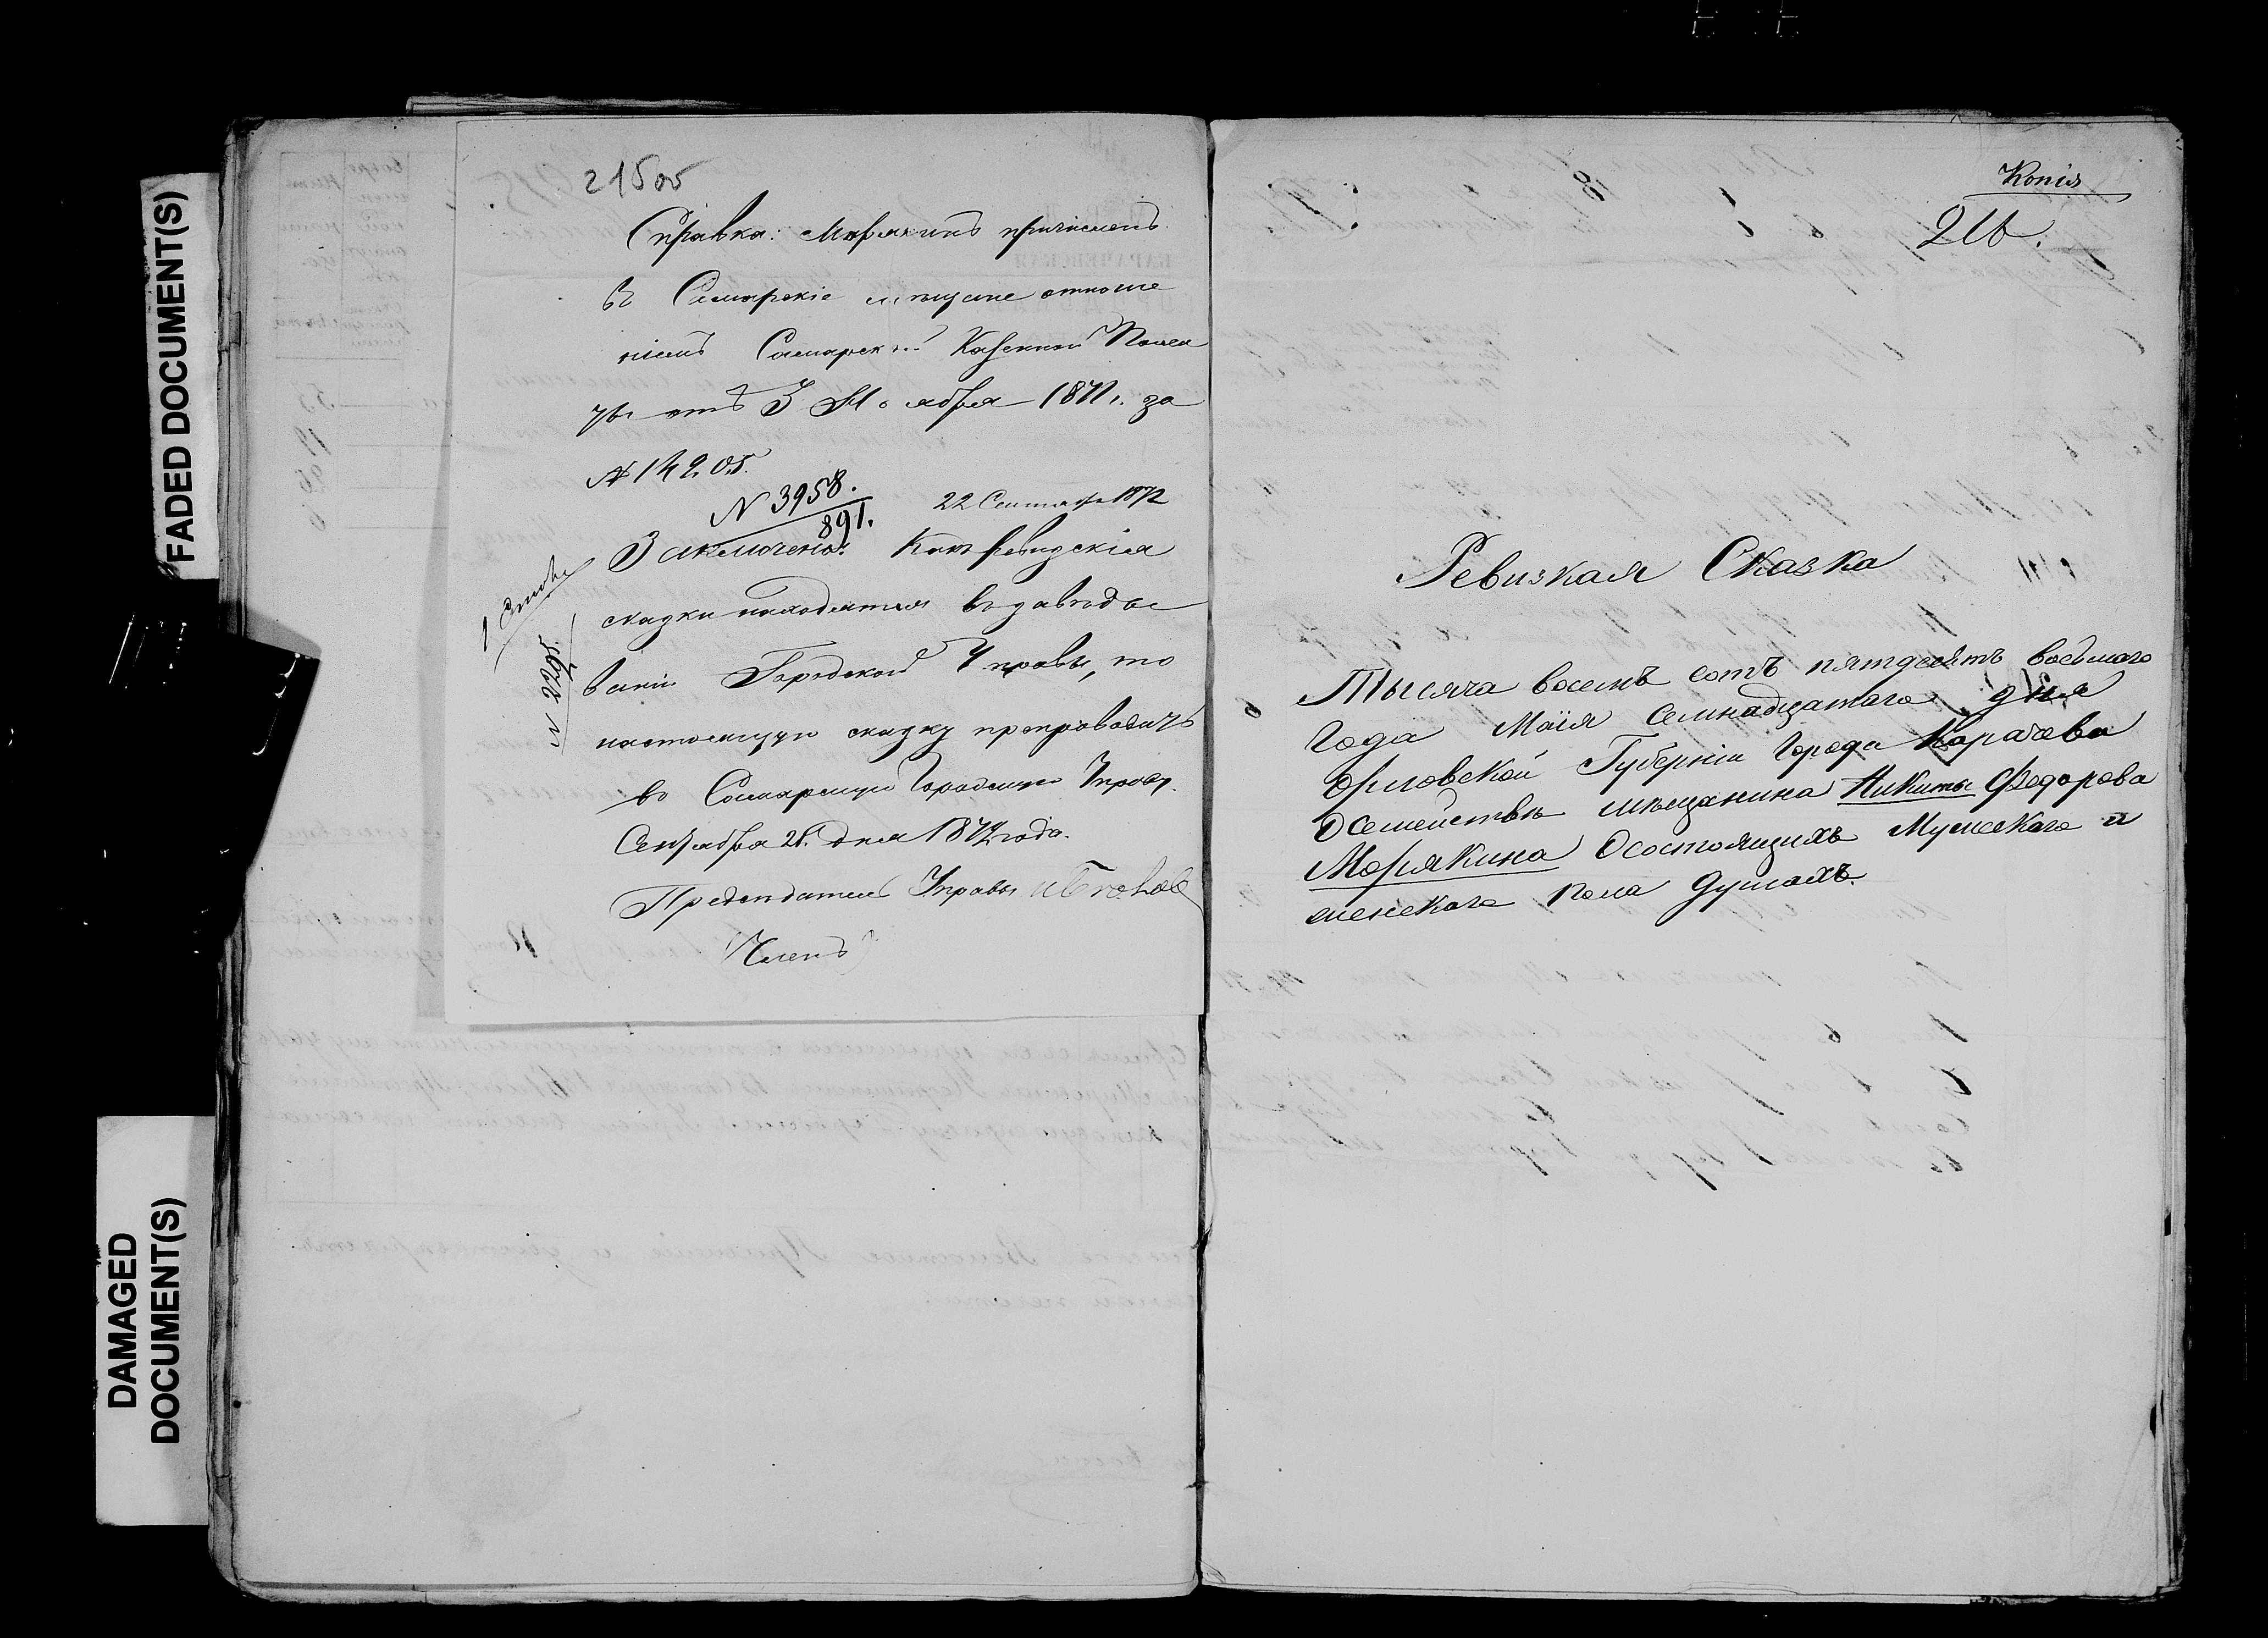 FADED DOCUMENT(S)
DAMAGED DOCUMENT(S)
215об
Справка: Морякинъ причисленъ
въ Самарскіе мѣщане отноше
ніемъ Самарской Казенной Пала
ты отъ 3 Ноября 1871г. за
№ 14205.
N 3958.
891.
22 Сентября 1872
Заключено: Какъ ревизскія
сказки находятся въ завѣды
ваніи Городской Управы, то
настоящую сказку препроводить
въ Самарскую Городскую Управу.
Сентября 21 дня 1872 года.
Председатель Управы
Членъ
N 2295
Копія
216.
Ревизкая Сказка
Тысяча восемь сотъ пятдесятъ восьмаго
Года Маія семнадцатаго дня
Орловской Губерніи Города Карачева
О семействѣ мѣщанина Никиты Федорова
Морякина О состоящихъ Мужескаго и
женскаго пола Душахъ.